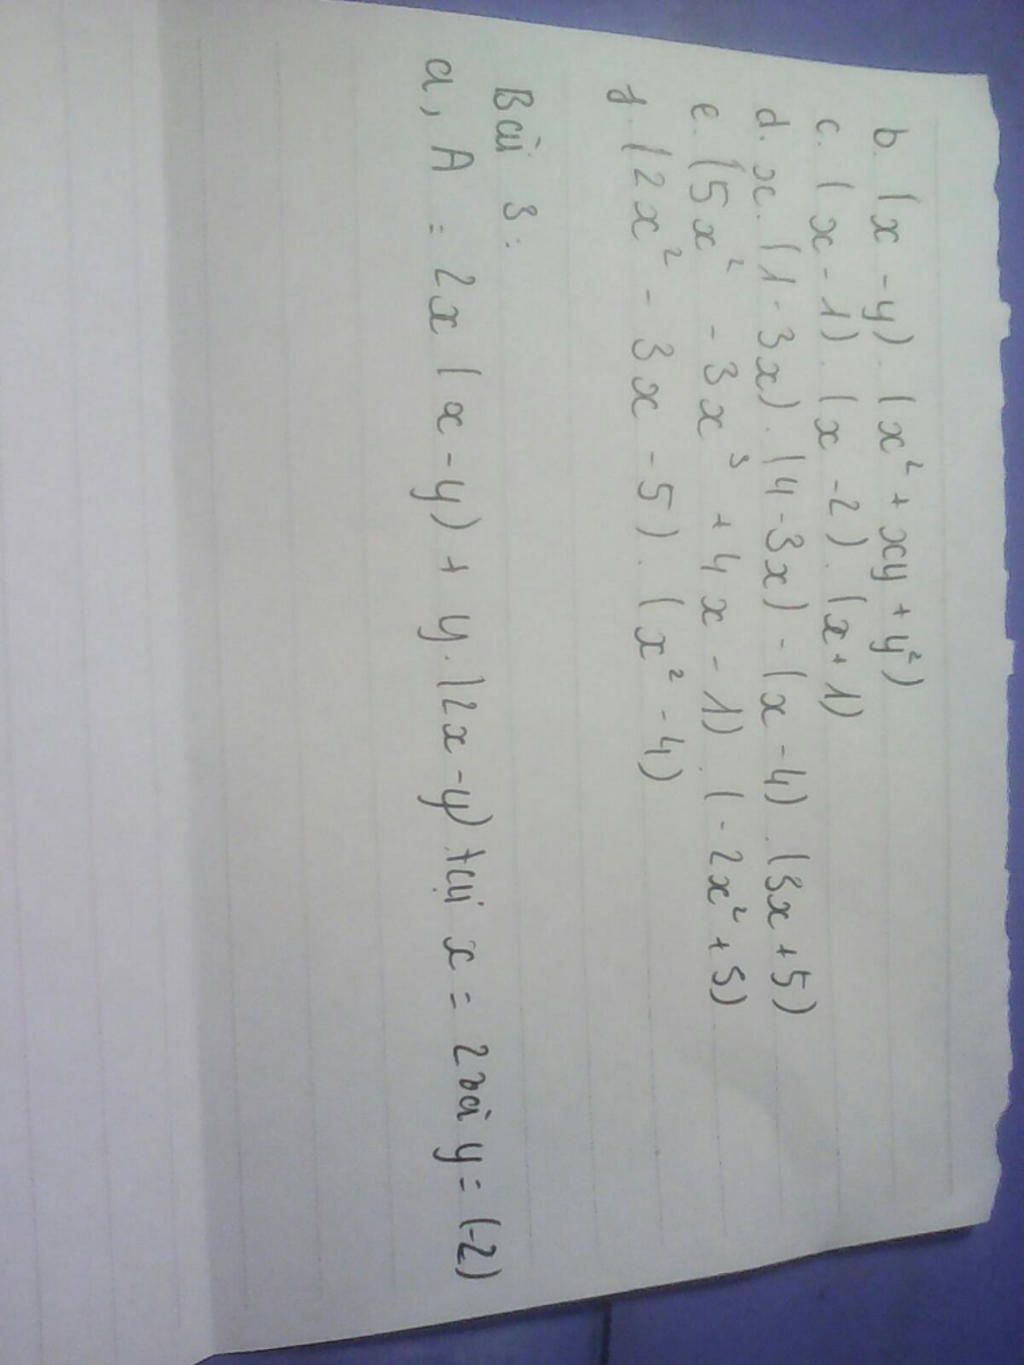 b. (x - y). (x² + xy + y²)
c. (x - 1). (x - 2). (x + 1)
d. x. (1 - 3x). (4 - 3x) - (x - 4). (3x + 5)
e. (5x² - 3x³ + 4x - 1). (-2x² + 5)
f. (2x² - 3x - 5). (x² - 4)
Bài 3:
a, A = 2x (x - y) + y. (2x - y) tại x = 2 và y = (-2)